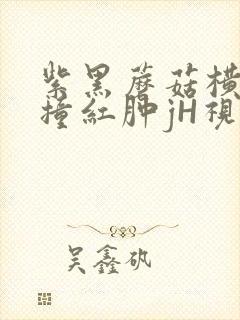 紫黑蘑菇横
撞紅肿jH視
吴鑫矾